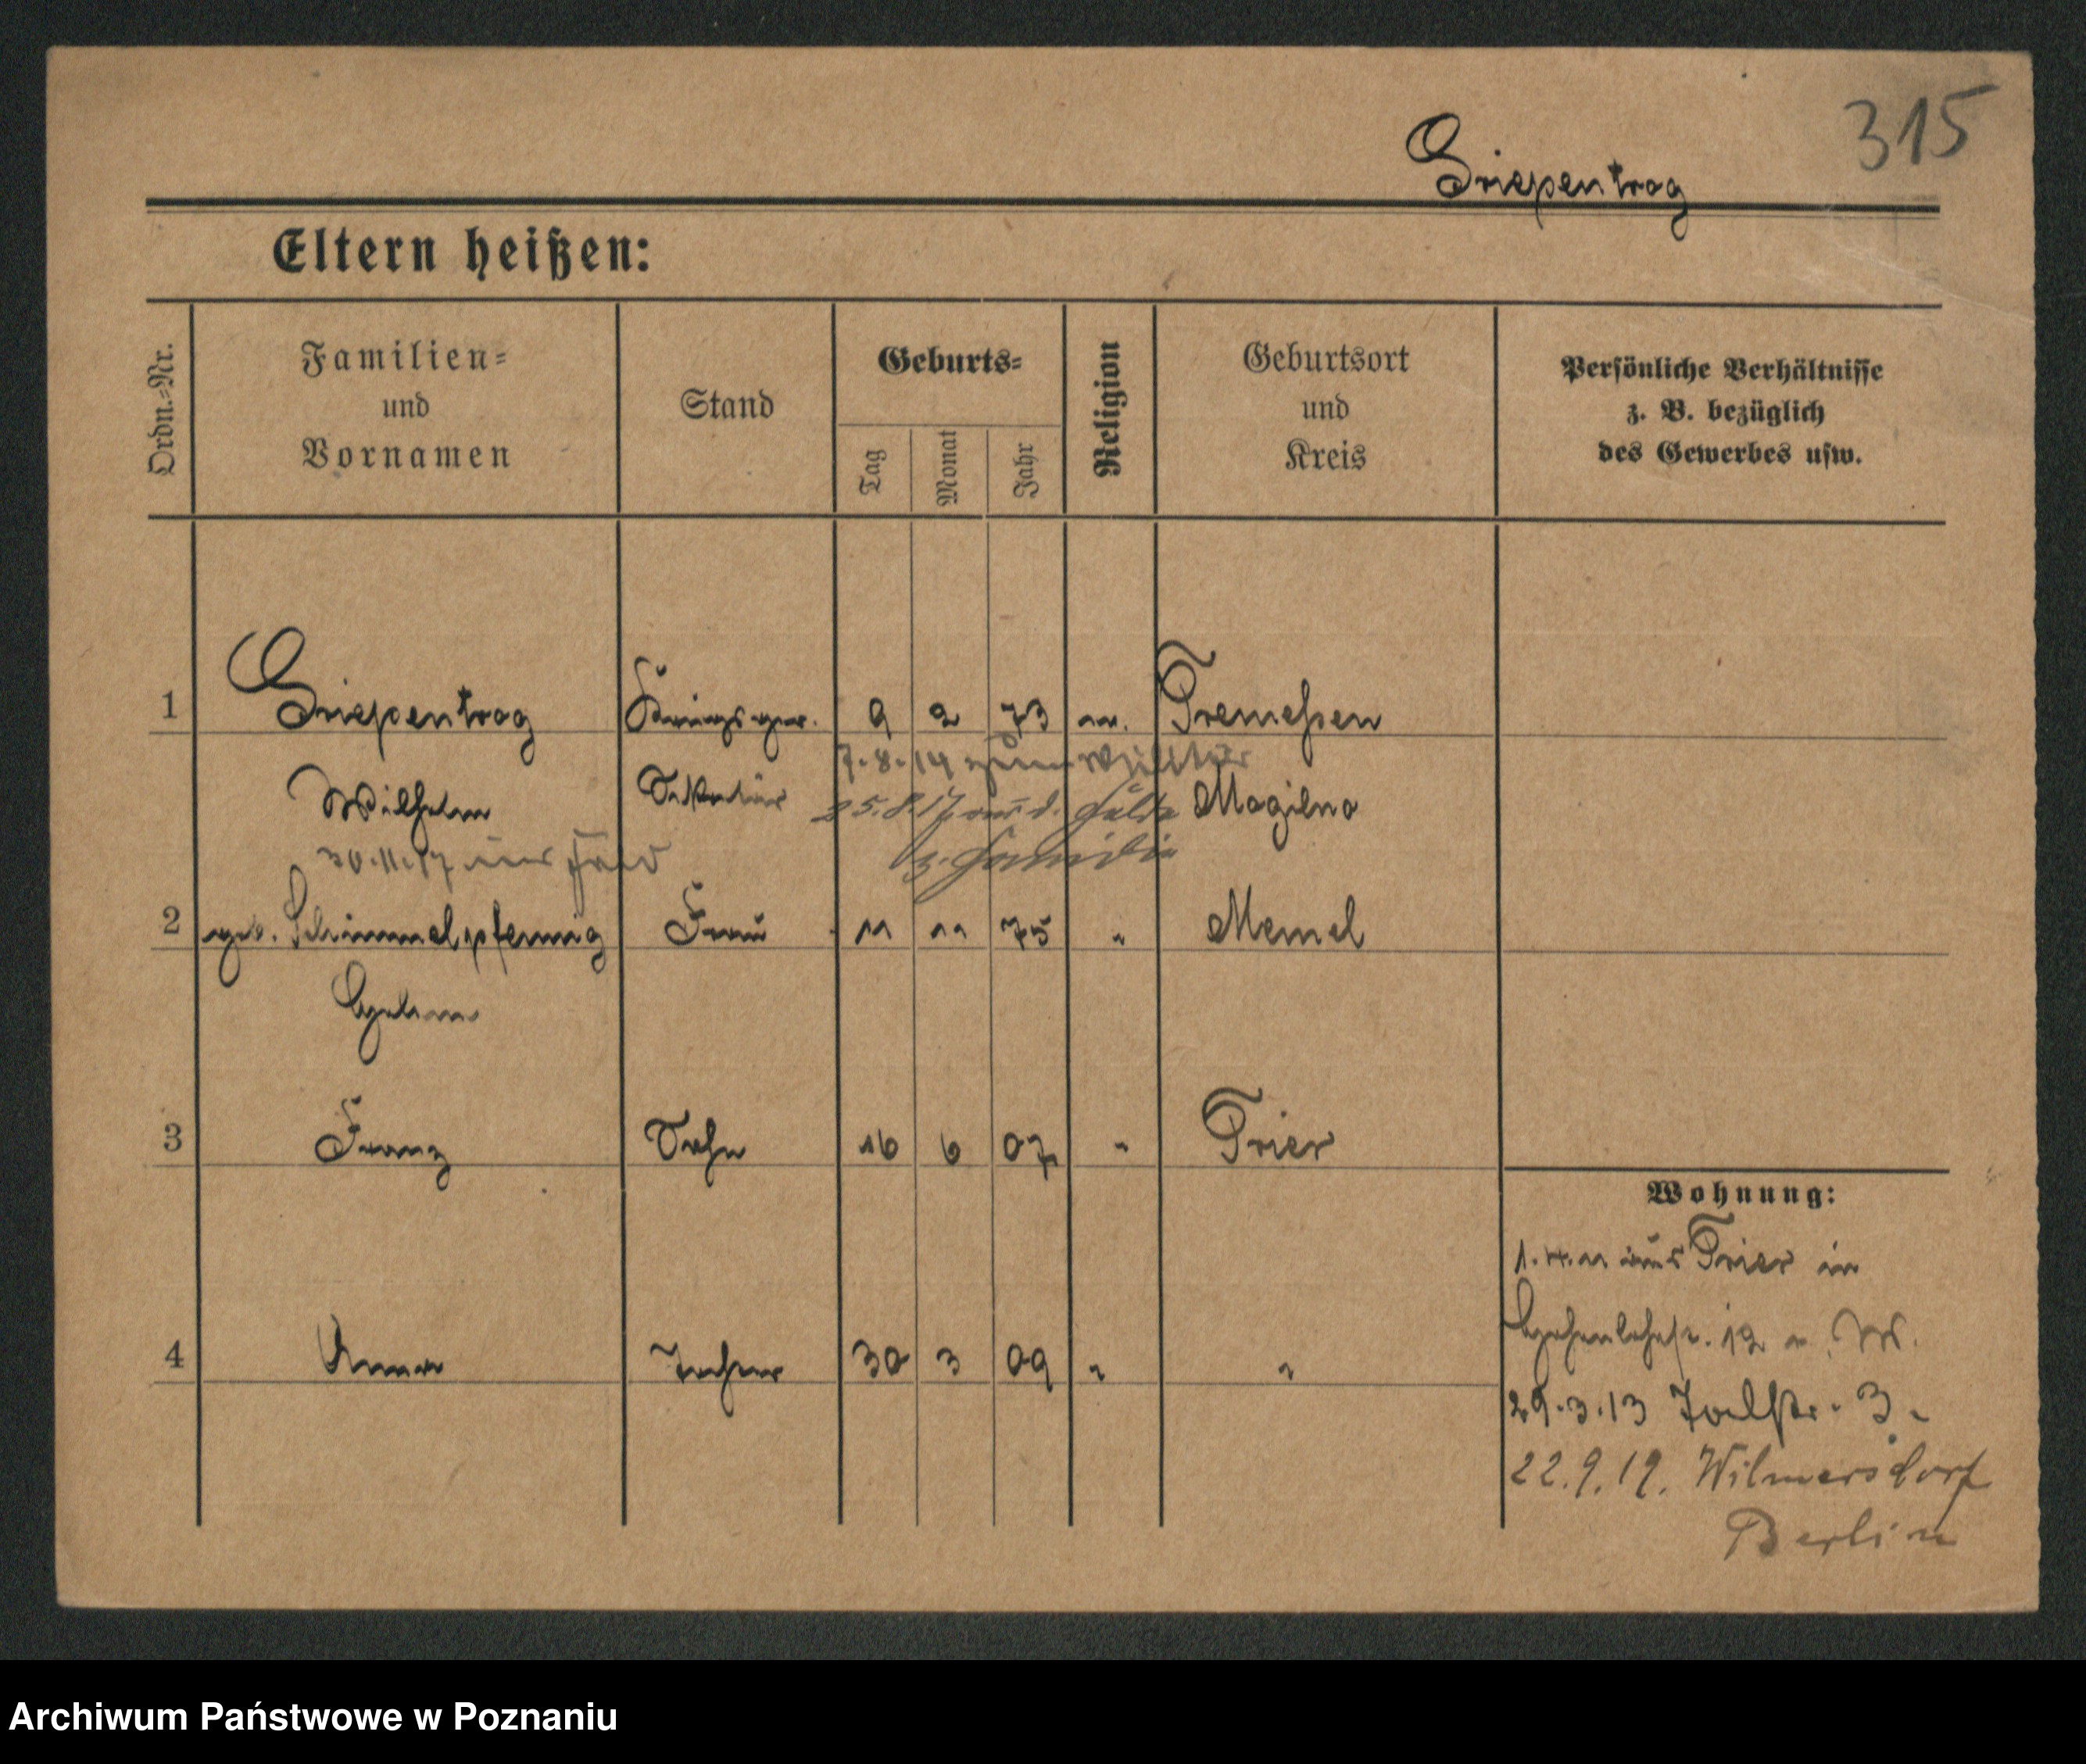 315
Griepentrog
Eltern heißen:
Ordn.=Nr.
Familien=
und
Vornamen
Stand
Geburts=
Tag
Monat
Jahr
Religion
Geburtsort
und
Kreis
Persönliche Verhältnisse
z. B. bezüglich
des Gewerbes usw.
1 Griepentrog Kriegsger. 9 2 73 ev. Tremessen
7.8.14 zum Militär
Wilhelm Sekretär 25.8.17 aus d. Felde Mogilno
30.11.17 ins Feld z. Familie
2 geb. Schimmelpfennig Frau 11 11 75 " Memel
Helene
3 Franz Sohn 16 6 07 " Trier
Wohnung:
1.4.11 aus Trier in
Hohenlohestr. 12 W.
4 Anna Tochter 30 3 09 " "
29.3.13 Talstr. 3.
22.9.19. Wilmersdorf
Berlin
Archiwum Państwowe w Poznaniu